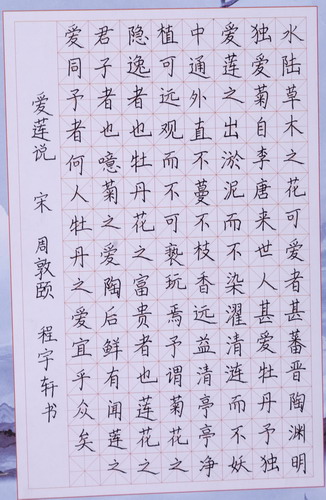 水陆草木之花可爱者甚蕃晋陶渊明
独爱菊自李唐来世人甚爱牡丹予独
爱莲之出淤泥而不染濯清涟而不妖
中通外直不蔓不枝香远益清亭亭净
植可远观而不可亵玩焉予谓菊花之
隐逸者也牡丹花之富贵者也莲花之
君子者也噫菊之爱陶后鲜有闻莲之
爱同予者何人牡丹之爱宜乎众矣
爱莲说 宋 周敦颐 程宇轩书